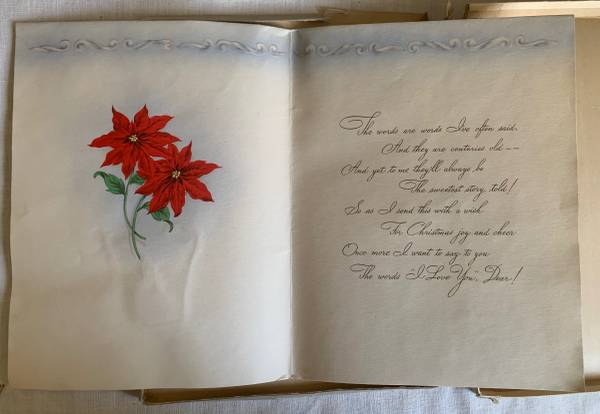 The words are words I've often said,
And they are centuries old --
And yet to me they'll always be
The sweetest story, told!
So as I send this with a wish
For Christmas joy and cheer
Once more I want to say to you
The words "I Love You", Dear!